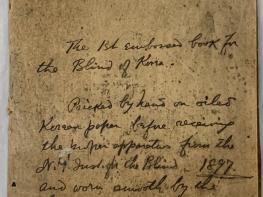 The 1st embossed book for
the Blind of Korea.
Pricked by hand on oiled
Korean paper before receiving
the proper apparatus from the
N.Y. Inst. for the Blind - 1897
and worn smooth by the